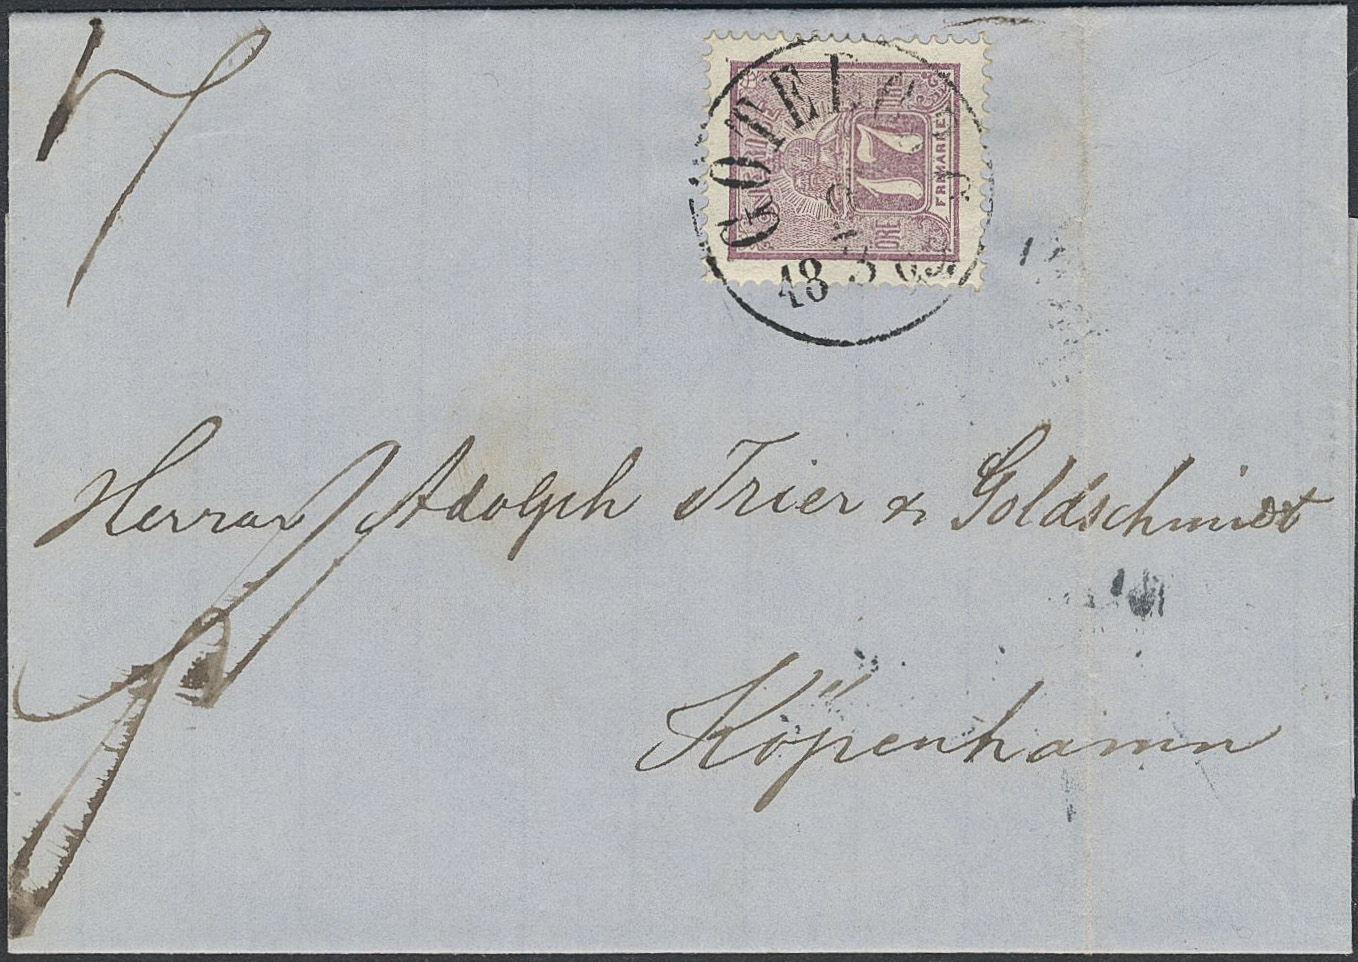 GÖTEBORG
9
3
18 69
17
ÖRE
FRMARKE
Herrar Adolph Trier & Goldschmidt
Köpenhamn